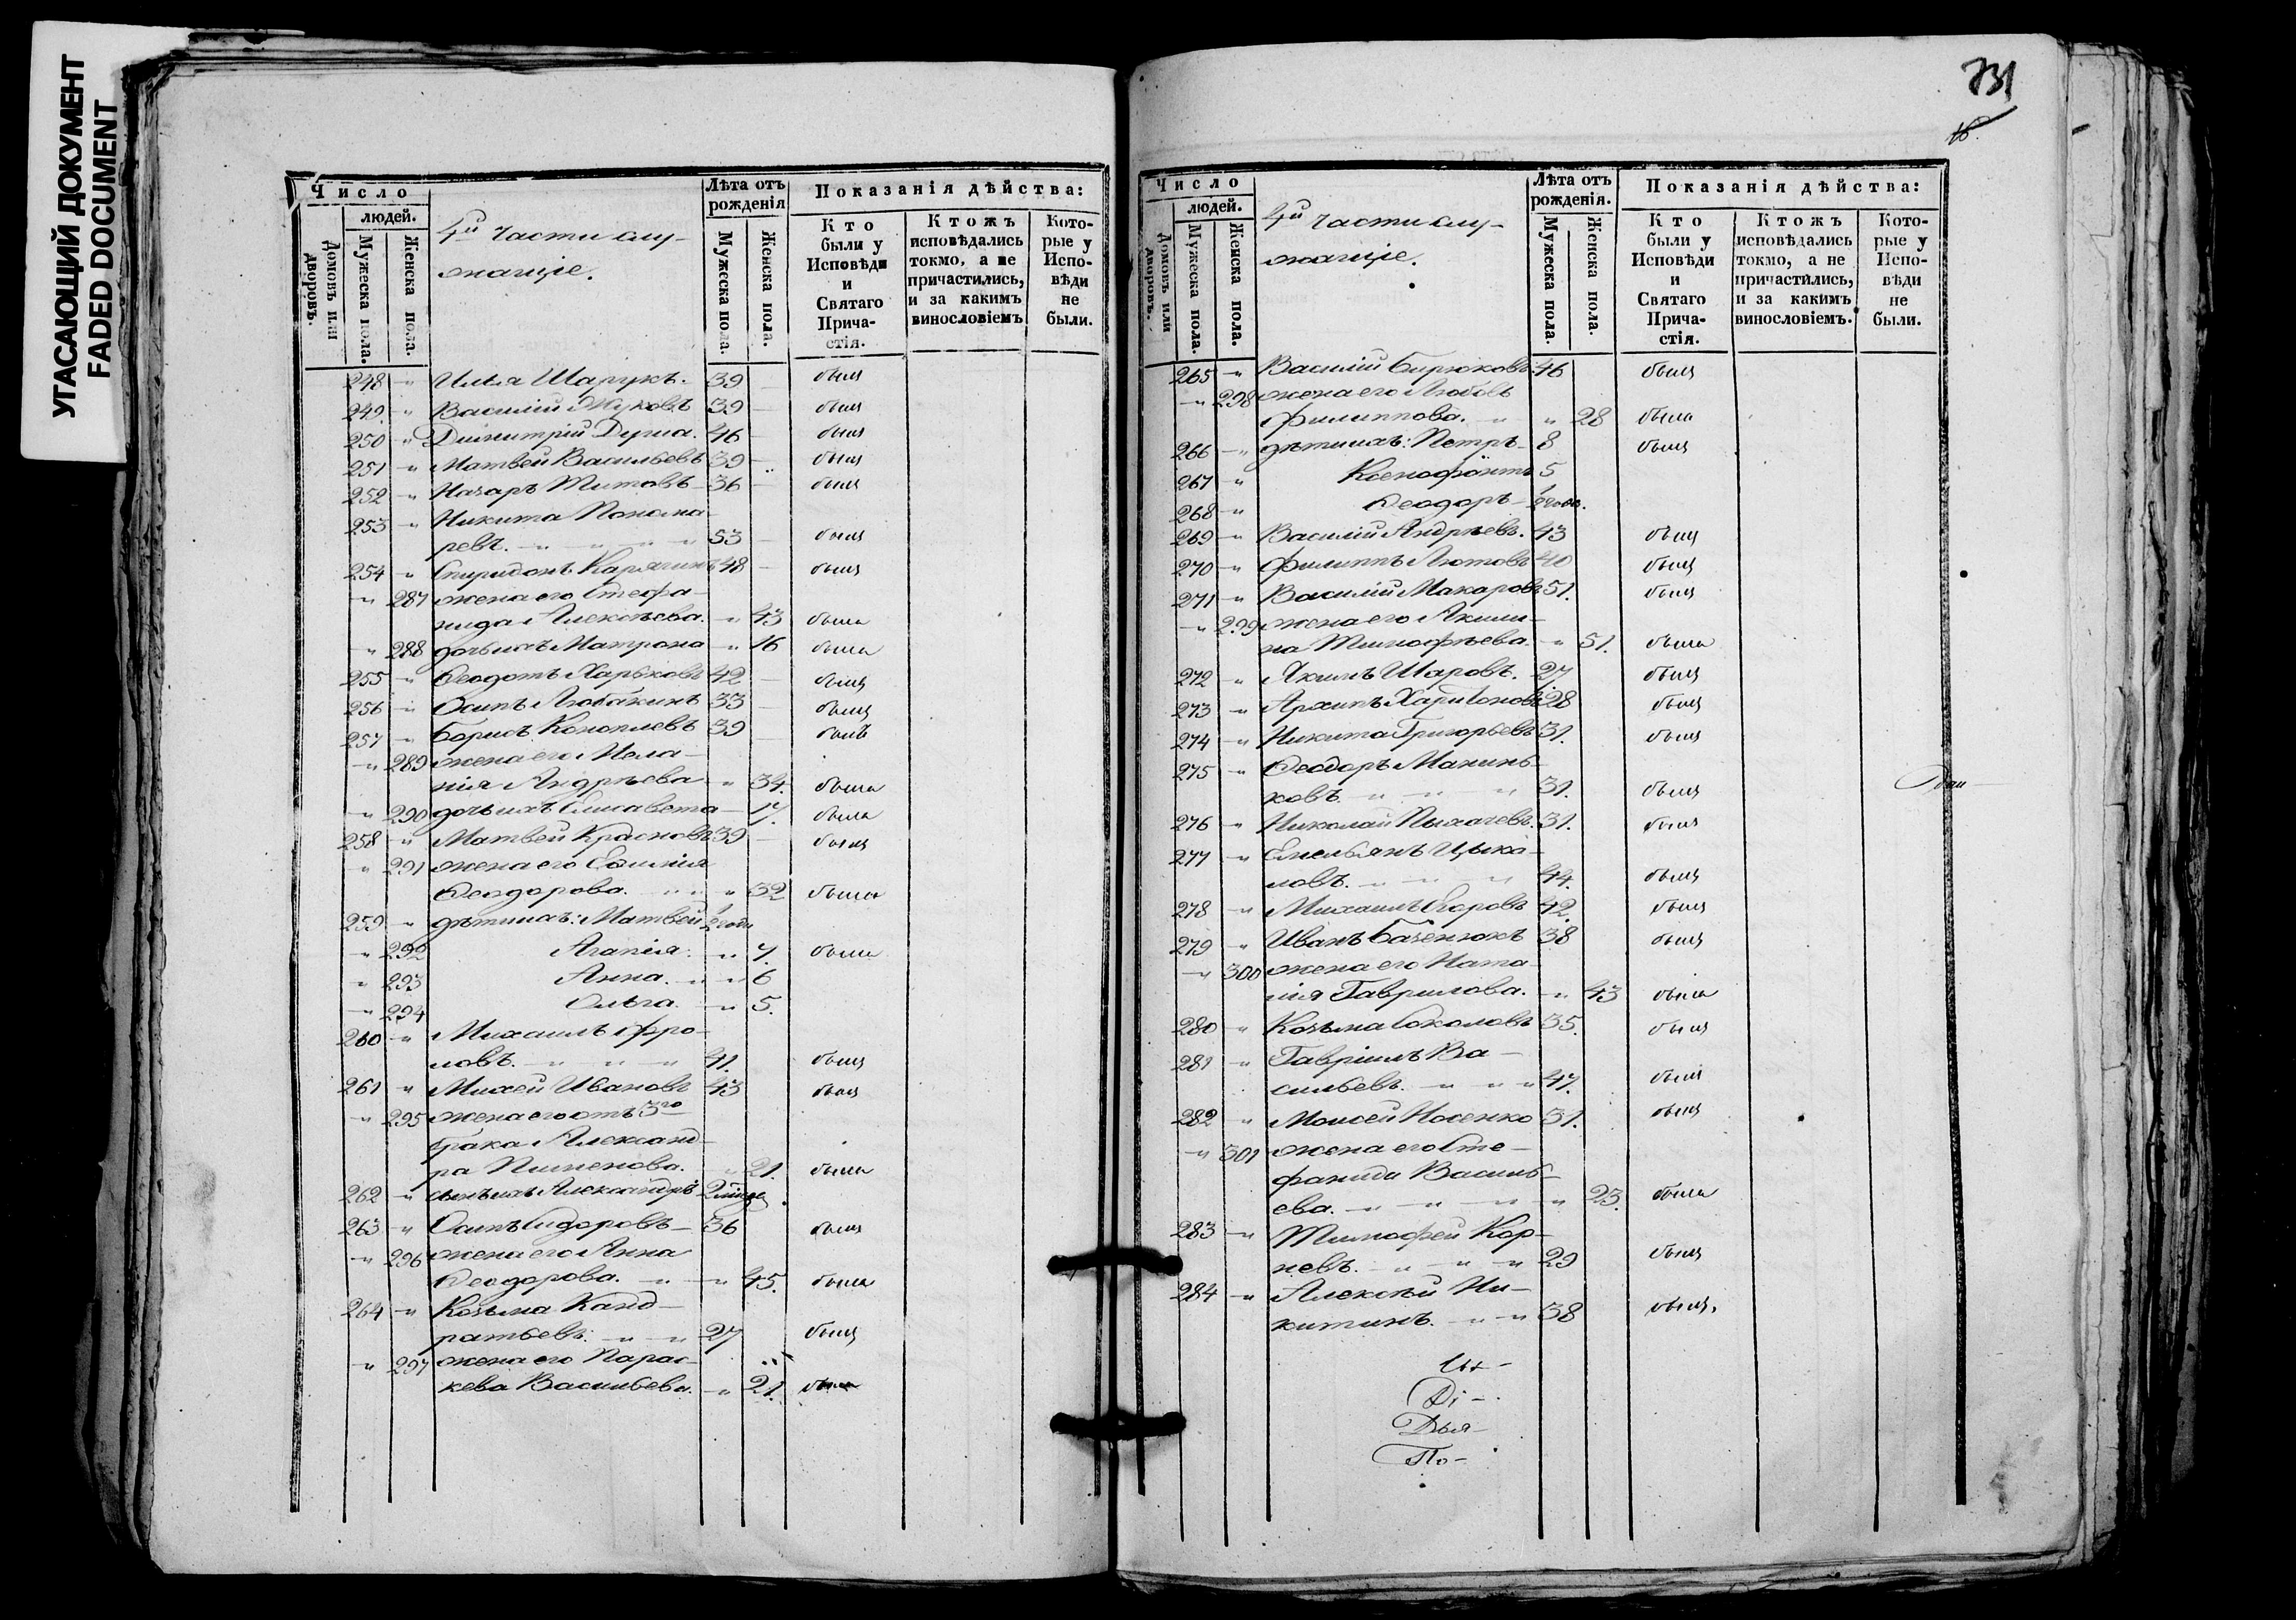 УГАСАЮЩИЙ ДОКУМЕНТ
FADED DOCUMENT
Число
людей.
Домовъ или дворовъ.
Мужеска пола.
Женска пола.
4й части слу-
жащіе.
Лѣта отъ рожденія
Мужеска пола.
Женска пола.
Показанія дѣйства:
Кто были у Исповѣди и Святаго Прича-стія.
Ктожъ исповѣдались токмо, а не причастились, и за какимъ винословіемъ
Кото-рые у Испо-вѣди не были.
248 " Илья Шарукъ. 39 былъ
249. " Василій Жуковъ 39 былъ
250 " Димитрій Душа. 46 былъ
251 " Матвей Васильевъ 39 былъ
252 " Назаръ Титовъ 36 былъ
253 " Никита Понома-
ревъ. " " " " 53 былъ
254 " Спиридонъ Карягинъ 48 былъ
" 287 жена его Стефа-
нида Алексѣева. " 43 была
" 288 дочь ихъ Матрона " 16 была
255 " Ѳеодотъ Харьковъ 42 былъ
256 " Осипъ Любакинъ 33 былъ
257 " Борисъ Коноплевъ 39 былъ
" 289 жена его Мела-
нія Андрѣева " 34. была
" 290 дочь ихъ Елисавета 17. была
258 " Матвей Красновъ 39 былъ
" 291 жена его Емилія
Ѳеодорова. " " " 32 была
259 " дѣти ихъ: Матвей 1/2 года
" 292 Агапія. " 7. была
" 293 Анна. " " 6
" 294 Ольга. " 5.
260 " Михаилъ Фро-
ловъ. " " " 41. былъ
261 " Михей Ивановъ 43 былъ
" 295 жена его отъ 3го
брака Александ-
ра Пименова. " 21. была
262 " сынъ ихъ Александръ 2
263 " Осипъ Сидоровъ 36 былъ
" 296 жена его Анна
Ѳеодорова. " " 45. была
264 " Козьма Канд-
ратьевъ. " " 27 былъ
" 297 жена его Парас-
кева Васильева. " 21. была
731
Число
людей.
Домовъ или дворовъ.
Мужеска пола.
Женска пола.
4й части слу-
жащіе.
Лѣта отъ рожденія.
Мужеска пола.
Женска пола.
Показанія дѣйства:
Кто были у Исповѣди и Святаго Прича-стія.
Ктожъ исповѣдались токмо, а не причастились, и за какимъ винословіемъ.
Кото-рые у Испо-вѣди не были.
265 " Василій Бирюковъ 46 былъ
" 298 жена его Любовь
Филиппова. " " 28 была
266 " дѣти ихъ: Петръ 8 былъ
267 " Ксенофонтъ 5
268 " Ѳеодоръ 1/2 года.
269 " Василій Андрѣевъ. 43 былъ
270 " Филиппъ Лютовъ 40 былъ
271 " Василій Макаровъ 51. былъ
" 299 жена его Акили-
на Тимофѣева. " 51. была
272 " Якимъ Шаровъ. 27. былъ
273 " Архипъ Харитоновъ 28 былъ
274 " Никита Григорьевъ 31. былъ
275 " Ѳеодоръ Манинь-
ковъ. " " " 31. былъ
276 " Николай Пыхачевъ. 31. былъ
277 " Емельянъ Цыка-
ловъ. " " " 44. былъ
278 " Михаилъ Егоровъ 42. былъ
279 " Иванъ Базенюкъ 38 былъ
" 300 жена его Ната-
лія Гаврилова. " 43 была
280 " Козьма Соколовъ 35. былъ
281 " Гавріилъ Ва-
сильевъ. " " " 47. былъ
282 " Моисей Носенко 31. былъ
" 301 жена его Сте-
фанида Василь-
ева. " " " " 23. была
283 " Тимофей Кор-
невъ. " " " 29 былъ
284 " Алексѣй Ни-
китинъ. " " 38 былъ.
Ді-
Дья-
По-